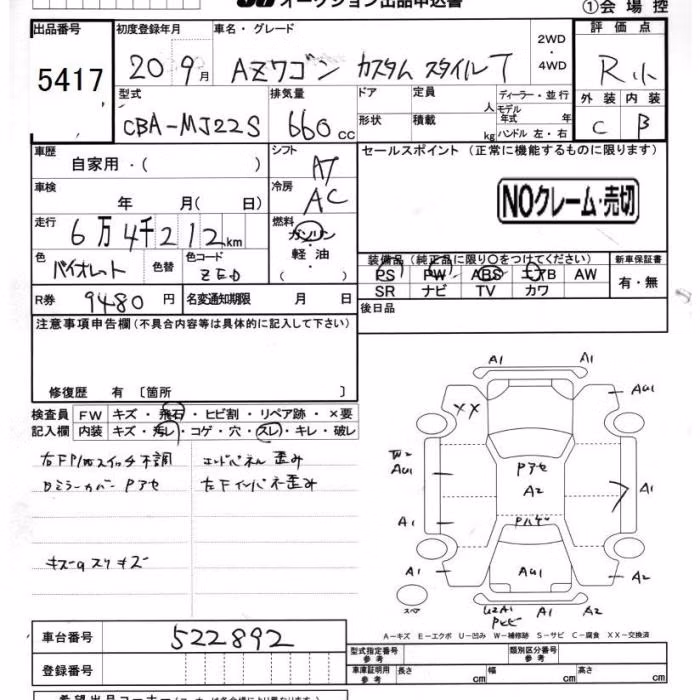 オークション出品申込書
①会場控
出品番号 初度登録年月 車名・グレード 評価点
5417 20 9月 AZワゴン カスタムスタイルT 2WD・4WD R小
型式 排気量 ドア 定員 人 ディーラー・並行 外装 内装
CBA-MJ22S 660cc 形状 積載 kg モデル年式 年 ハンドル 左・右 C B
車歴 自家用・( ) シフト AT セールスポイント (正常に機能するものに限ります)
車検 年 月( 日) 冷房 AC
NOクレーム・売切
走行 6万4千212km 燃料 ガソリン・軽油・( )
色 バイオレット 色替 色コード ZED
装備品(純正品に限り○をつけてください) 新車保証書
PS PW ABS エアB AW 有・無
SR ナビ TV カワ
R券 9480円 名変通知期限 月 日 後日品
注意事項申告欄(不具合内容等は具体的に記入して下さい)
修復歴 有 〔箇所 〕
検査員 FW キズ・飛石・ヒビ割・リペア跡・×要
記入欄 内装 キズ・汚レ・コゲ・穴・スレ・キレ・破レ
右FP/Wスイッチ不調 エンドパネル歪み
Dミラーカバー Pアセ 左Fインパネ歪み
キズ スリキズ
A1 A1
XX AU1
W2 AU1 Pアセ A2 A1
A1 Pハゲ
A1 AU1 A2
スペア U2A1 A1 A1
A-キズ E-エクボ U-凹み W-補修跡 S-サビ C-腐食 XX-交換済
車台番号 522892 型式指定番号 参考 類別区分番号 参考
登録番号 車庫証明用 参考 長さ cm 幅 cm 高さ cm